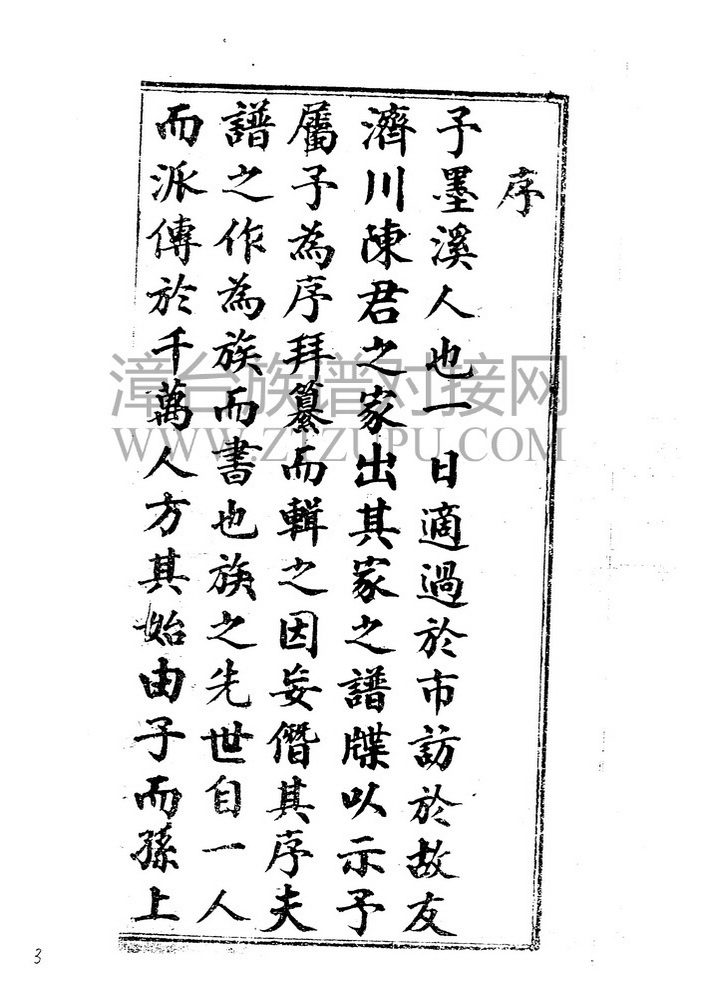 序
予墨溪人也一日適過於市訪於故友
濟川陳君之家出其家之譜牒以示予
屬予為序拜纂而輯之因妄僭其序夫
譜之作為族而書也族之先世自一人
而派傳於千萬人方其始由子而孫上
漳台族谱对接网
WWW.ZTZUPU.COM
3